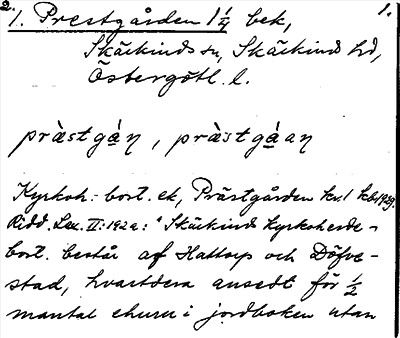 2. 1.
1. Prestgården 1 1/4 bek,
Skärkinds sn, Skärkinds hd,
Östergötl. l.
præ̀stgạ̀ṇ, præ̀stgạ̀aṇ
Kyrkoh.-bost. ek, Prästgården kv. 1 kbr 1929.
Ridd. Lex. II:192a: "Skärkind kyrkoherde-
bost. består af Hattorp och Döfve-
stad, hvartdera ansedt för 1/2
mantal ehuru i jordboken utan